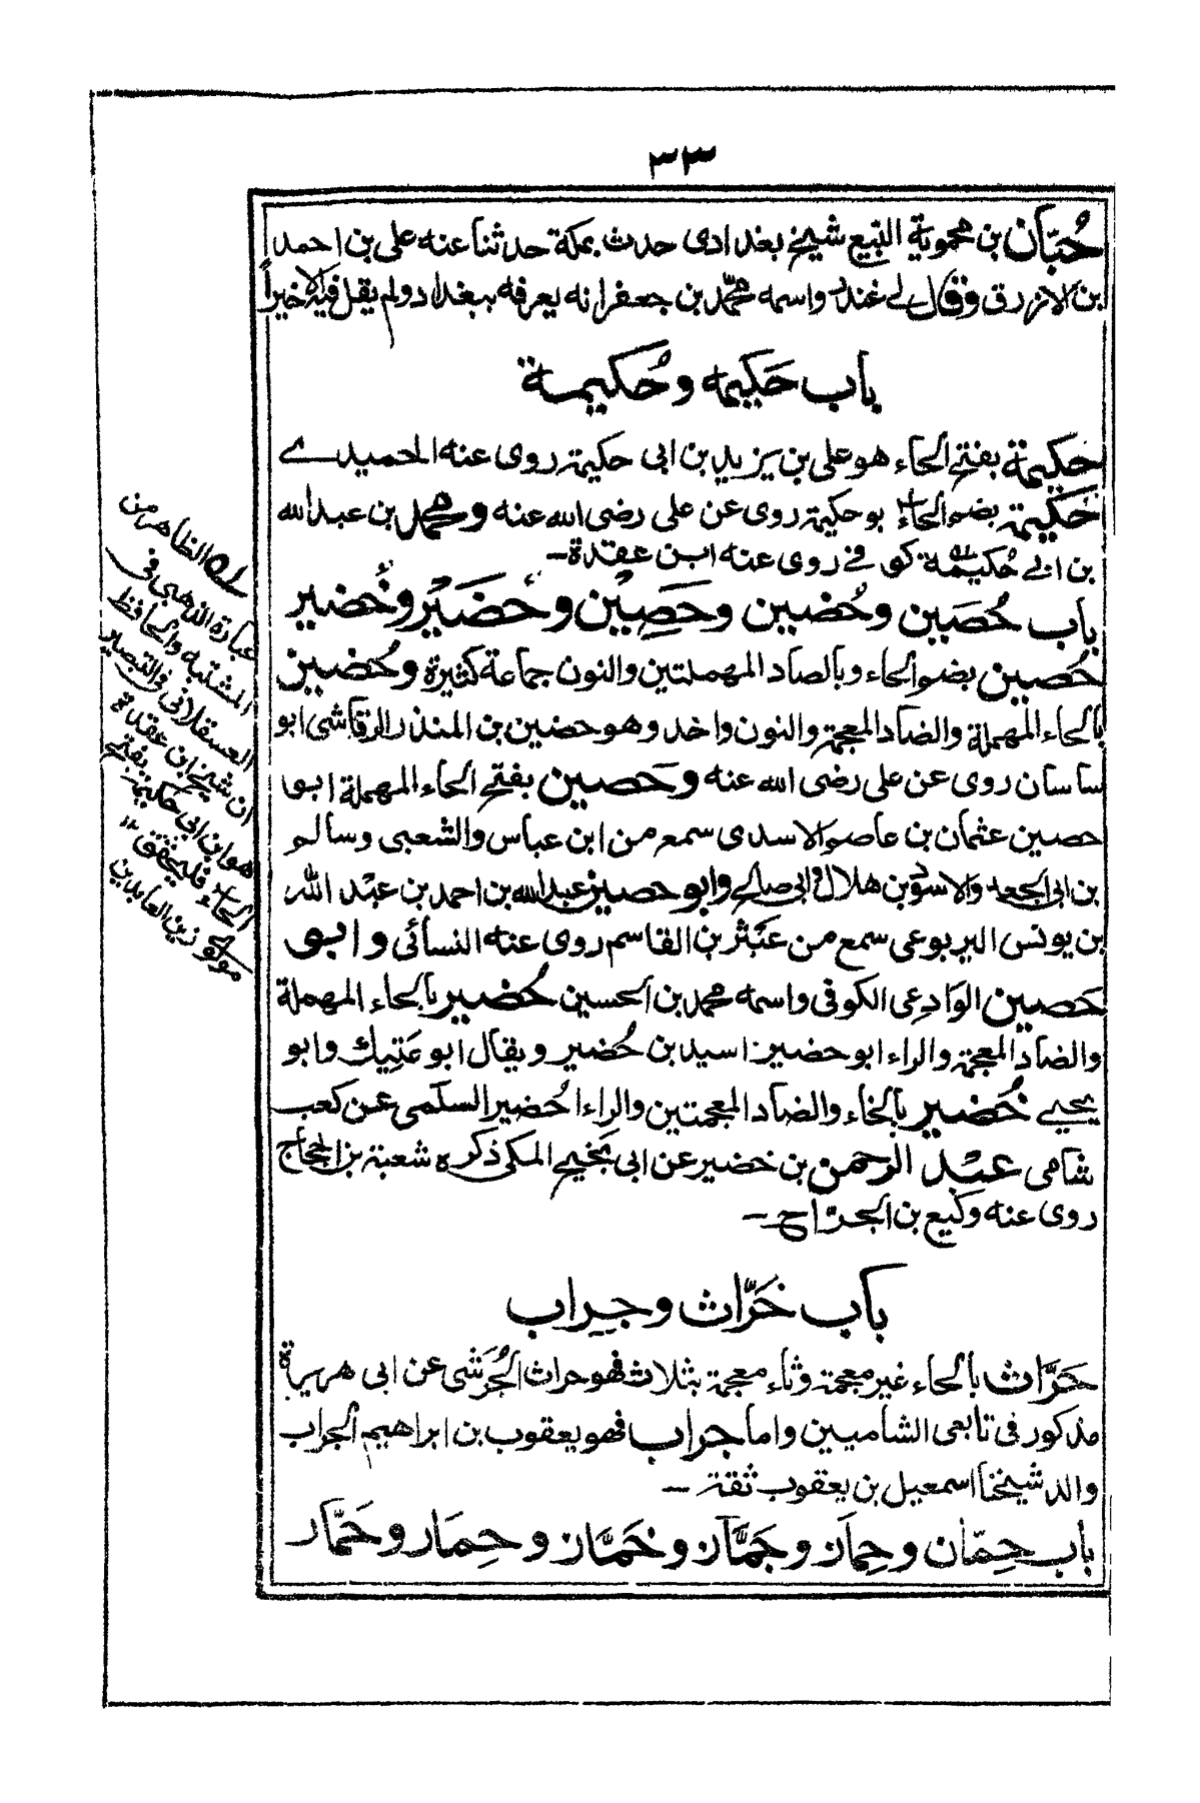 ٣٣
حُبّان بن محموية البَيّع شيخ بغدادى حدث بمكة حدثنا عنه على بن احمد
ابن الازرق وقال لى غندر واسمه محمّد بن جعفر انه يعرفه ببغداد ولم يقل فيه الا خيراً
باب حَكيمه وحُكيمة
حَكيمة بفتح الحاء هو على بن يزيد بن ابى حكيمة روى عنه الحميدے
حُكَيمة بضم الحاء بو حكيمة روى عن على رضى الله عنه ومحمد بن عبد الله
بن ابى حُكيمة كوفى روى عنه ابن عقدة ـ
باب حُصَين وحُضين وحَصِين وحُضَيْر وخُضير
حُصين بضم الحاء وبالصاد المهملتين والنون جماعة كثيرة وحُضين
بالحاء المهملة والضاد المعجمة والنون واحد وهو حضين بن المنذر الرقاشى ابو
ساسان روى عن على رضى الله عنه وحَصين بفتح الحاء المهملة ابو
حصين عثمان بن عاصم الاسدى سمع من ابن عباس والشعبى وسالم
بن ابى الجعد والاسود بن هلال وابى صالح وابو حصين عبد الله بن احمد بن عبد الله
بن يونس اليربوعى سمع من عَبْثر بن القاسم روى عنه النسائى وابو
حَصين الوَادِعى الكوفى واسمه محمد بن الحسين حُضير بالحاء المهملة
والضاد المعجمة والراء ابو حضير اسيد بن حُضير ويقال ابو عَتِيك وابو
يحيے خُضير بالخاء والضاد المعجمتين والراء خُضير السلَمى عن كعب
شامى عبد الرحمن بن خضير عن ابى نجيح المكى ذكره شعبة بن الحجاج
روى عنه وكيع بن الجرّاح ـ
باب حَرَّاث وجراب
حَرَّاث بالحاء غير معجمة وثاء معجمة بثلاث فهو حراث الجُرَشى عن ابى هريرة
مذكور فى تابعى الشاميين واما جراب فهو يعقوب بن ابراهيم الجراب
والد شيخنا اسمعيل بن يعقوب ثقة ـ
باب حِمّان وحِمَان وجَمَّان وخَمَّان وحِمَار وحَمَّار
له الظاهر من
عبارة الذهبى فى
المشتبه والحافظ
العسقلانى فى التبصير
ان شيخ ابن عقدة
هو ابن ابى حكيمة بفتح
الحاء فليحقق ١٢
مولوى زين العابدين